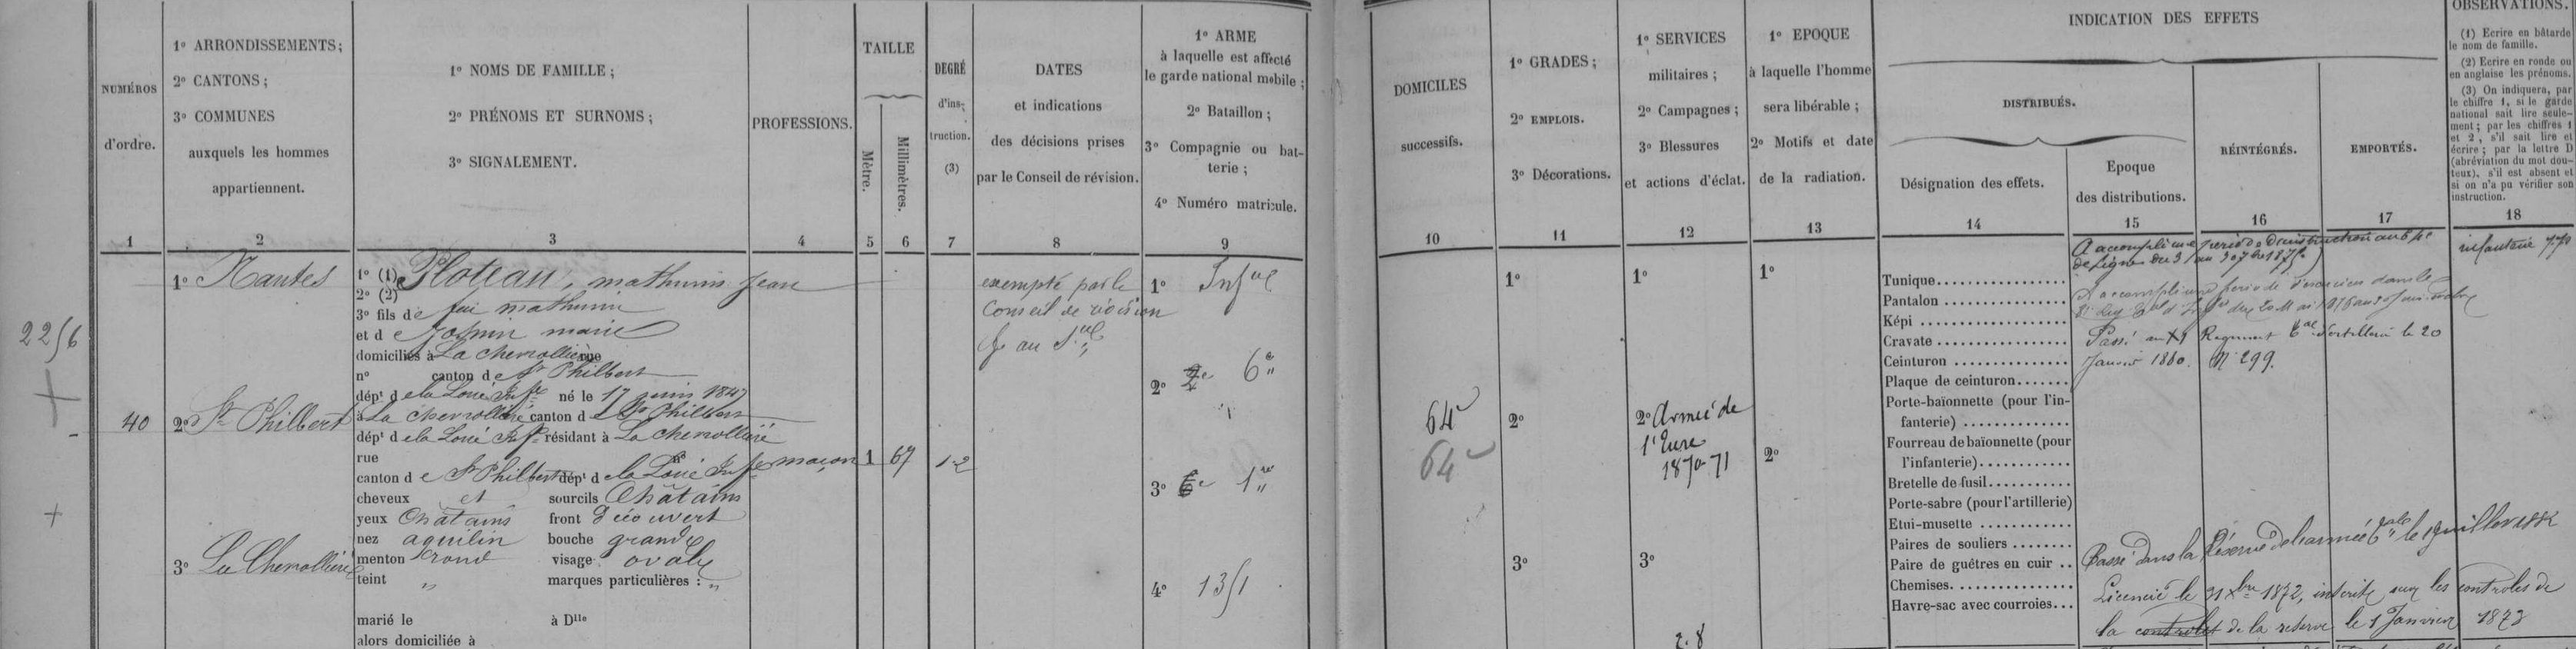 NUMÉROS
d'ordre.
1
1º ARRONDISSEMENTS;
2º CANTONS;
3º COMMUNES
auxquels les hommes
appartiennent.
2
1º NOMS DE FAMILLE;
2º PRÉNOMS ET SURNOMS;
3º SIGNALEMENT.
3
PROFESSIONS.
4
TAILLE
Mètre.
Millimètres.
5 6
DEGRÉ
d'ins-
truction.
(3)
7
DATES
et indications
des décisions prises
par le Conseil de révision.
8
1º ARME
à laquelle est affecté
le garde national mobile;
2º Bataillon;
3º Compagnie ou bat-
terie;
4º Numéro matricule.
9
DOMICILES
successifs.
10
1º GRADES;
2º EMPLOIS.
3º Décorations.
11
1º SERVICES
militaires;
2º Campagnes;
3º Blessures
et actions d'éclat.
12
1º EPOQUE
à laquelle l'homme
sera libérable;
2º Motifs et date
de la radiation.
13
INDICATION DES EFFETS
DISTRIBUÉS.
Désignation des effets.
14
Epoque
des distributions.
15
RÉINTÉGRÉS.
16
EMPORTÉS.
17
OBSERVATIONS.
(1) Ecrire en bâtarde
le nom de famille.
(2) Ecrire en ronde ou
en anglaise les prénoms.
(3) On indiquera, par
le chiffre 1, si le garde
national sait lire seule-
ment; par les chiffres 1
et 2, s'il sait lire et
écrire; par la lettre D
(abréviation du mot dou-
teux), s'il est absent et
si on n'a pu vérifier son
instruction.
18
2256
40
1º Nantes
2º St Philbert
3º La Chevrollière
1º (1) Ploteau, mathurin Jean
2º (2)
3º fils de feu mathurin
et de marie
domiciliés à La chevrollière rue
nº canton de St Philbert
dépt de la Loire Infre né le 17 juin 1847
à La chevrollière canton de St Philbert
dépt de la Loire Infre résidant à La chevrollière
rue nº
canton de St Philbert dépt de la Loire Infre
cheveux et sourcils Châtains
yeux Châtains front Découvert
nez aquilin bouche grande
menton rond visage ovale
teint " marques particulières : "
marié le à Dlle
alors domiciliée à
maçon
1 67
1-2
exempté par le
Conseil de révision
1º
2º 2e 6e
3º 6e 1re
4º 1351
64
64
1º
2º
3º
1º
2º Armée de
l'Eure
1870-71
3º
2.8
1º
2º
Tunique
Pantalon
Képi
Cravate
Ceinturon
Plaque de ceinturon
Porte-baïonnette (pour l'in-
fanterie)
Fourreau de baïonnette (pour
l'infanterie)
Bretelle de fusil
Porte-sabre (pour l'artillerie)
Etui-musette
Paires de souliers
Paire de guêtres en cuir
Chemises
Havre-sac avec courroies
A accompli une période d'instruction au
de ligne du 3 au 30 7bre 1875
A accompli une période d'exercices dans le
du 20 Mai 1878 au
Passé au Régiment d'artillerie le 20
Janvier 1880. Nº 299.
Passé dans la Réserve de l'armée le 1 juillet 1882
Licencié le 31 Xbre 1872, inscrit sur les controles de
la controles de la réserve le 1 Janvier 1873
infanterie